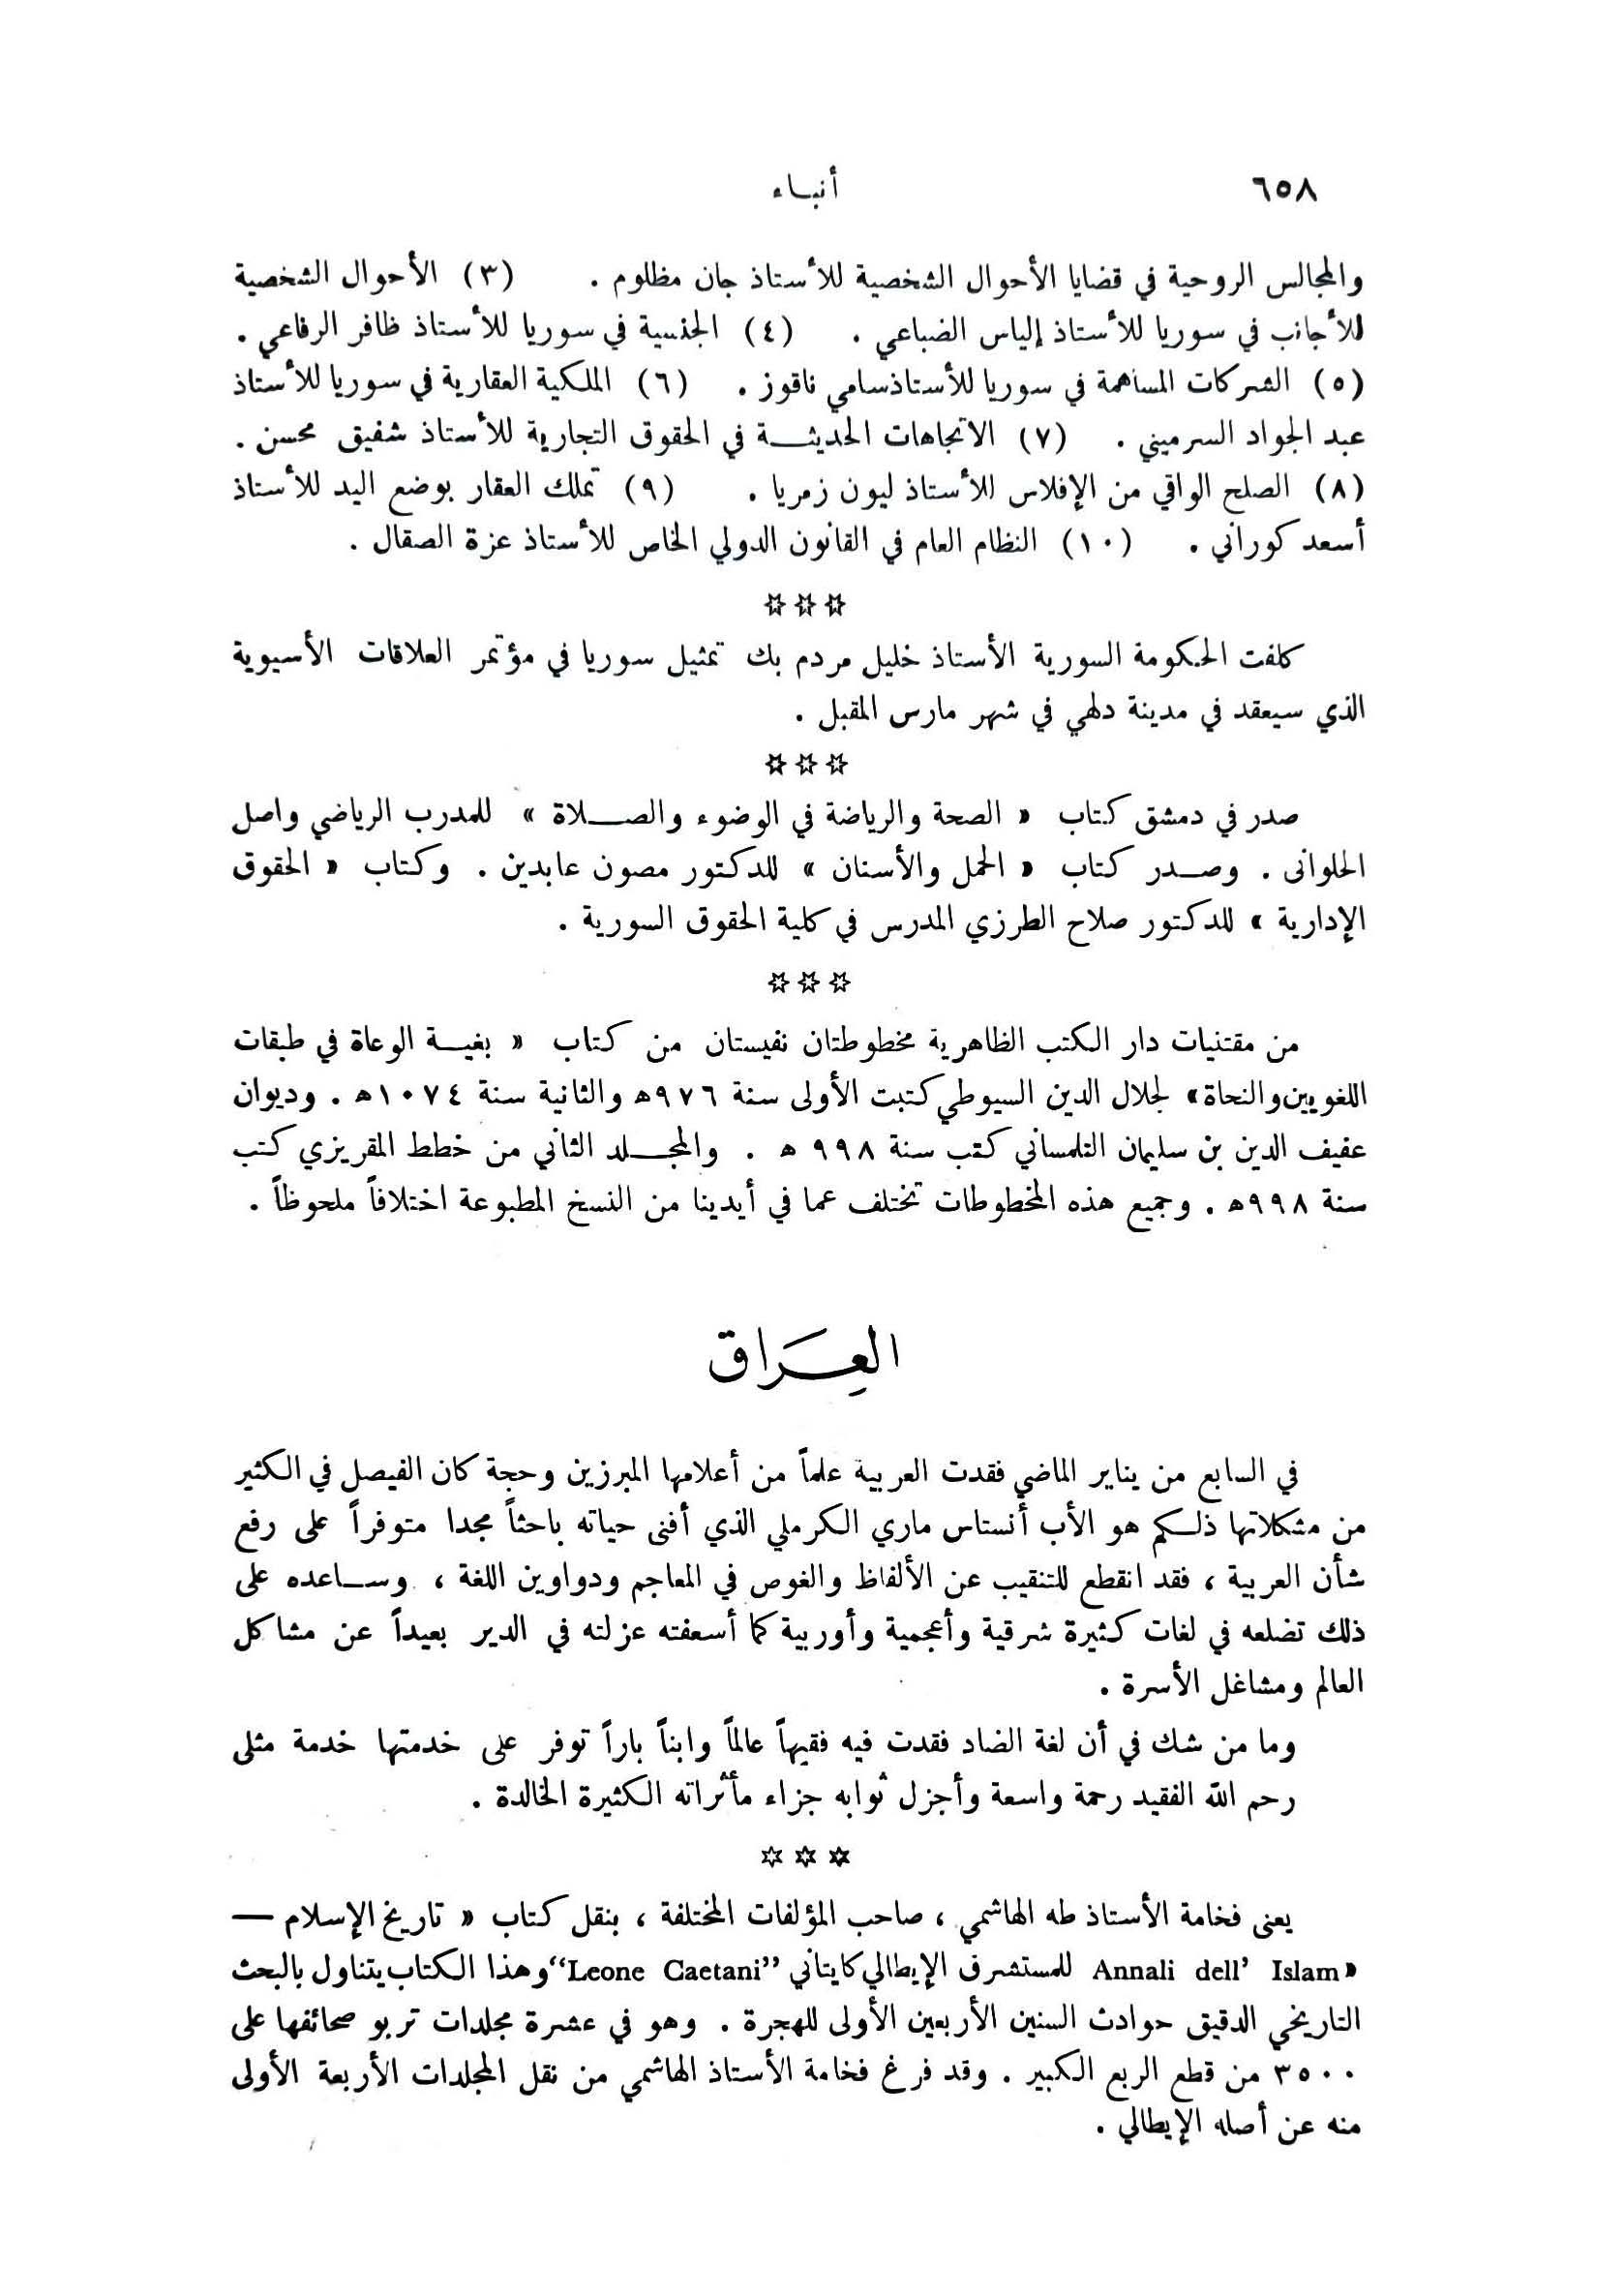 ٦٥٨
أنباء
والمجالس الروحية في قضايا الأحوال الشخصية للأستاذ جان مظلوم . (٣) الأحوال الشخصية
للأجانب في سوريا للأستاذ إلياس الضباعي . (٤) الجنسية في سوريا للأستاذ ظافر الرفاعي .
(٥) الشركات المساهمة في سوريا للأستاذ سامي ناقوز . (٦) الملكية العقارية في سوريا للأستاذ
عبد الجواد السرميني . (٧) الاتجاهات الحديثة في الحقوق التجارية للأستاذ شفيق محسن .
(٨) الصلح الواقي من الإفلاس للأستاذ ليون زمريا . (٩) تملك العقار بوضع اليد للأستاذ
أسعد كوراني . (١٠) النظام العام في القانون الدولي الخاص للأستاذ عزة الصقال .
☆☆☆
كلفت الحكومة السورية الأستاذ خليل مردم بك تمثيل سوريا في مؤتمر العلاقات الأسيوية
الذي سيعقد في مدينة دلهي في شهر مارس المقبل .
☆☆☆
صدر في دمشق كتاب « الصحة والرياضة في الوضوء والصلاة » للمدرب الرياضي واصل
الحلوانى . وصدر كتاب « الحمل والأسنان » للدكتور مصون عابدين . وكتاب « الحقوق
الإدارية » للدكتور صلاح الطرزي المدرس في كلية الحقوق السورية .
☆☆☆
من مقتنيات دار الكتب الظاهرية مخطوطتان نفيستان من كتاب « بغية الوعاة في طبقات
اللغويين والنحاة » لجلال الدين السيوطي كتبت الأولى سنة ٩٧٦ه والثانية سنة ١٠٧٤ه . وديوان
عفيف الدين بن سليمان التلمساني كتب سنة ٩٩٨ ه . والمجلد الثاني من خطط المقريزي كتب
سنة ٩٩٨ه . وجميع هذه المخطوطات تختلف عما في أيدينا من النسخ المطبوعة اختلافاً ملحوظاً .
العِرَاق
في السابع من يناير الماضي فقدت العربية علماً من أعلامها المبرزين وحجة كان الفيصل في الكثير
من مشكلاتها ذلكم هو الأب أنستاس ماري الكرملي الذي أفنى حياته باحثاً مجدا متوفراً على رفع
شأن العربية ، فقد انقطع للتنقيب عن الألفاظ والغوص في المعاجم ودواوين اللغة ، وساعده على
ذلك تضلعه في لغات كثيرة شرقية وأعجمية وأوربية كما أسعفته عزلته في الدير بعيداً عن مشاكل
العالم ومشاغل الأسرة .
وما من شك في أن لغة الضاد فقدت فيه فقيهاً عالماً وابناً باراً توفر على خدمتها خدمة مثلى
رحم الله الفقيد رحمة واسعة وأجزل ثوابه جزاء مأثراته الكثيرة الخالدة .
☆☆☆
يعنى فخامة الأستاذ طه الهاشمي ، صاحب المؤلفات المختلفة ، بنقل كتاب « تاريخ الإسلام —
Annali dell' Islam » للمستشرق الإيطالي كايتاني "Leone Caetani" وهذا الكتاب يتناول بالبحث
التاريخي الدقيق حوادث السنين الأربعين الأولى للهجرة . وهو في عشرة مجلدات تربو صحائفها على
٣٥٠٠ من قطع الربع الكبير . وقد فرغ فخامة الأستاذ الهاشمي من نقل المجلدات الأربعة الأولى
منه عن أصله الإيطالي .